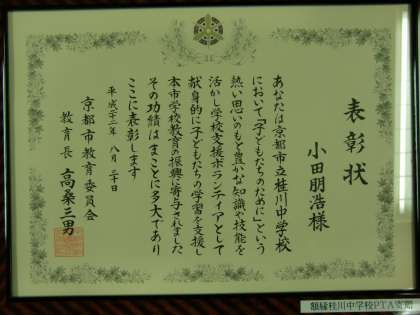 表彰状
小田朋浩様
あなたは京都市立桂川中学校
において「子どもたちのために」という
熱い思いのもと豊かな知識や技能を
活かし学校支援ボランティアとして
献身的に子どもたちの学習を支援し
本市学校教育の振興に寄与されました
その功績はまことに多大であり
ここに表彰します
平成二十二年 八月二十日
京都市教育委員会
教育長 高桑三男
額縁桂川中学校PTA寄贈